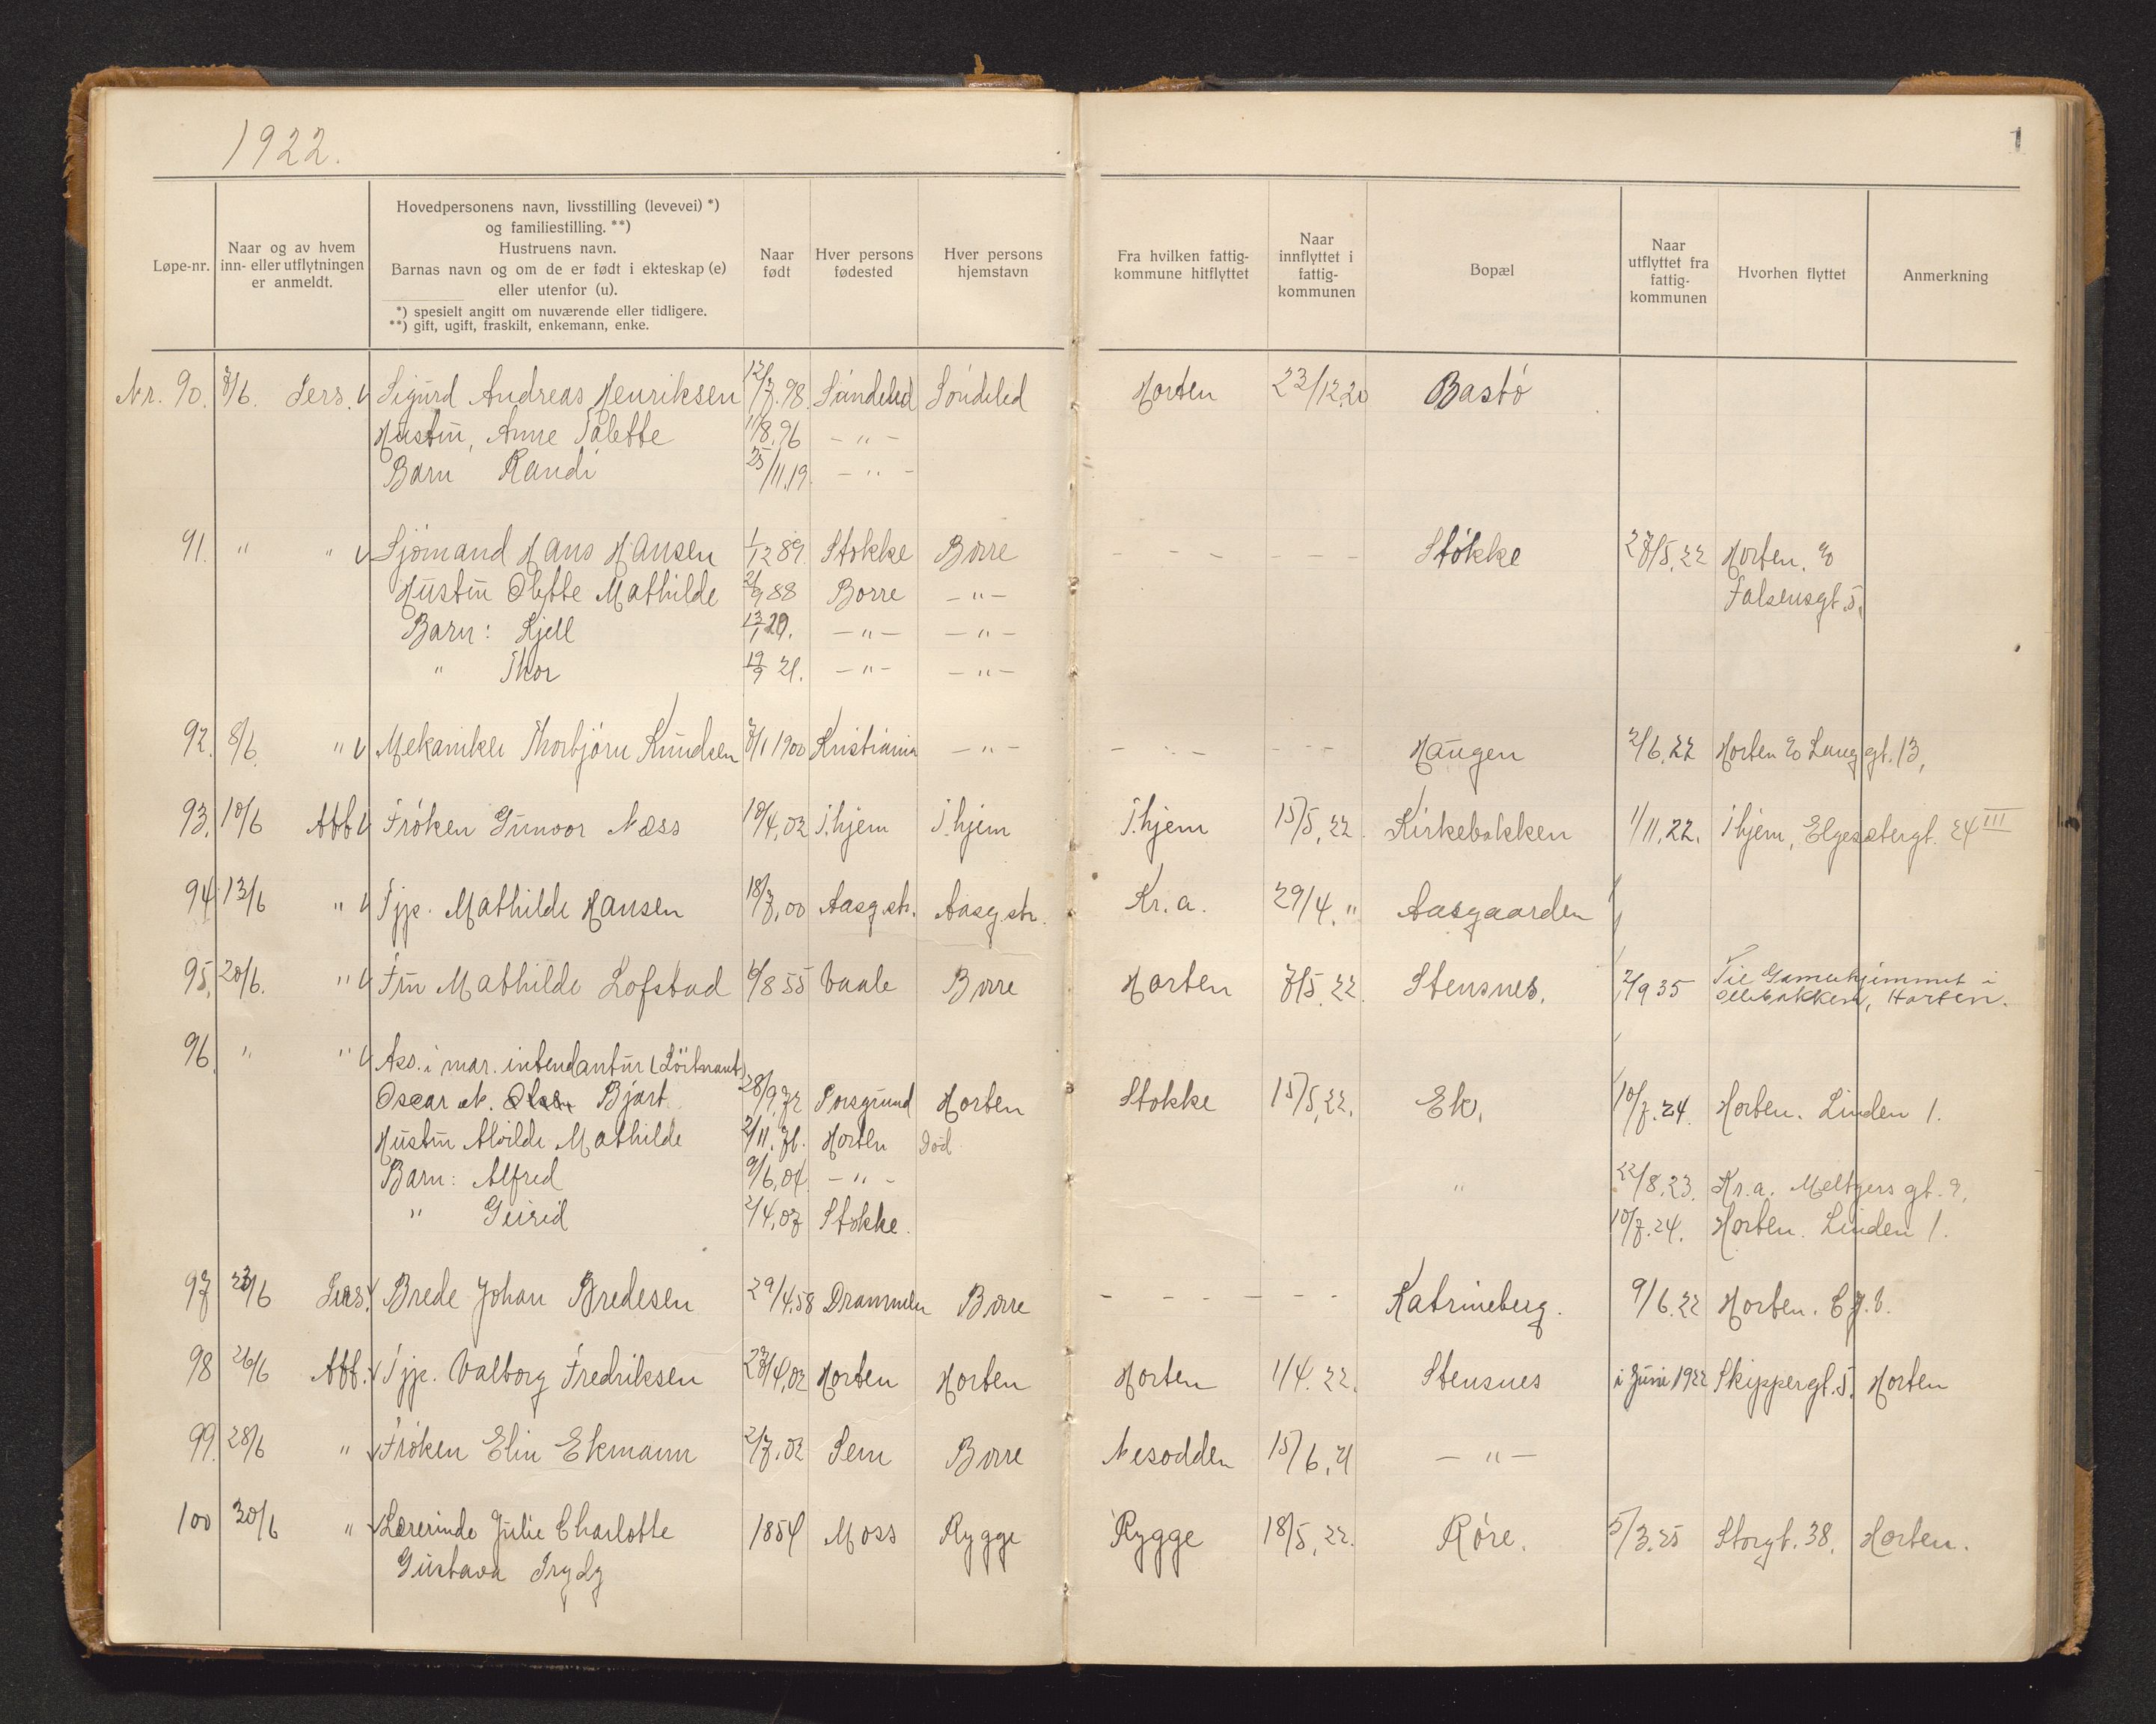 1922.
1
Løpe-nr.
Naar og av hvem
inn- eller utflytningen
er anmeldt.
Hovedpersonens navn, livsstilling (levevei) *)
og familiestilling. **)
Hustruens navn.
Barnas navn og om de er født i ekteskap (e)
eller utenfor (u).
*) spesielt angitt om nuværende eller tidligere.
**) gift, ugift, fraskilt, enkemann, enke.
Naar
født
Hver persons
fødested
Hver persons
hjemstavn
Fra hvilken fattig-
kommune hitflyttet
Naar
innflyttet i
fattig-
kommunen
Bopæl
Naar
utflyttet fra
fattig-
kommunen
Hvorhen flyttet
Anmerkning
Nr. 90. 7/6. Sigurd Andreas Henriksen 12/7.98. Söndeled Söndeled Horten 23/12.20 Bastö
Hustru, Anne Talette 11/8.96 - " -
Barn Randi 25/11.19. - " -
91. " " Sjömand Hans Hansen 1/12 89. Stokke Borre - - - - - - Stökke 27/5.22 Horten.
Hustru Olette Mathilde 21/9 88 Borre - " - Falsensgt. 5.
Barn: Kjell 13/1 20. - " - - " -
" Thor 19/9 21. - " - - " -
92. 8/6. " Mekaniker Thorbjörn Knudsen 7/1 1900 Kristiania - " - Haugen 2/6.22 Horten Langgt. 13,
93. 10/6 Abb Fröken Gunvor Næss 10/4.02 T.hjem T.hjem T.hjem 15/5.22. Kirkebakken 1/11.22. T.hjem, Elgesætergt. 24 III
94 13/6 " Tjp. Mathilde Hansen 18/7.00 Aasg.str. Aasg.str. Kr.a. 29/4. " Aasgaarden
95. 20/6. " Fru Mathilde Lofstad 6/8 55 Vaale Borre Horten 7/5.22. Stensnes. 2/9 35 Til Gamlehjemmet i
Ollebakken, Horten.
96. " " Ass. i mar. intendantur (Löitnant)
Oscar M. Olsen Bjart 28/9.72 Porsgrund Horten Stokke 15/5.22. Ek. 10/7.24. Horten. Linden 1.
Hustru Alvilde Mathilde 2/11.76. Horten Död
Barn: Alfred 9/6.04 - " - " 22/8.23. Kr.a. Meltzers gt. 9.
" Geirid 2/4.07 Stokke. 10/7.24. Horten. Linden 1.
97 23/6 Brede Johan Bredesen 29/4.58 Drammen Borre - - - - - Katrineberg. 9/6.22 Horten.
98 26/6 Abb. Tjp. Valborg Fredriksen 27/4.02 Horten Horten Horten 1/4.22. Stensnes i Juni 1922 Skippergt. 5. Horten
99. 28/6 " Fröken Elin Ekmann 2/7.02 Sem Borre Nesodden 15/6.21 - " -
100 30/6 " Lærerinde Julie Charlotte 1854 Moss Rygge Rygge 18/5.22. Röre. 5/3.25 Storgt. 38. Horten.
Gustava